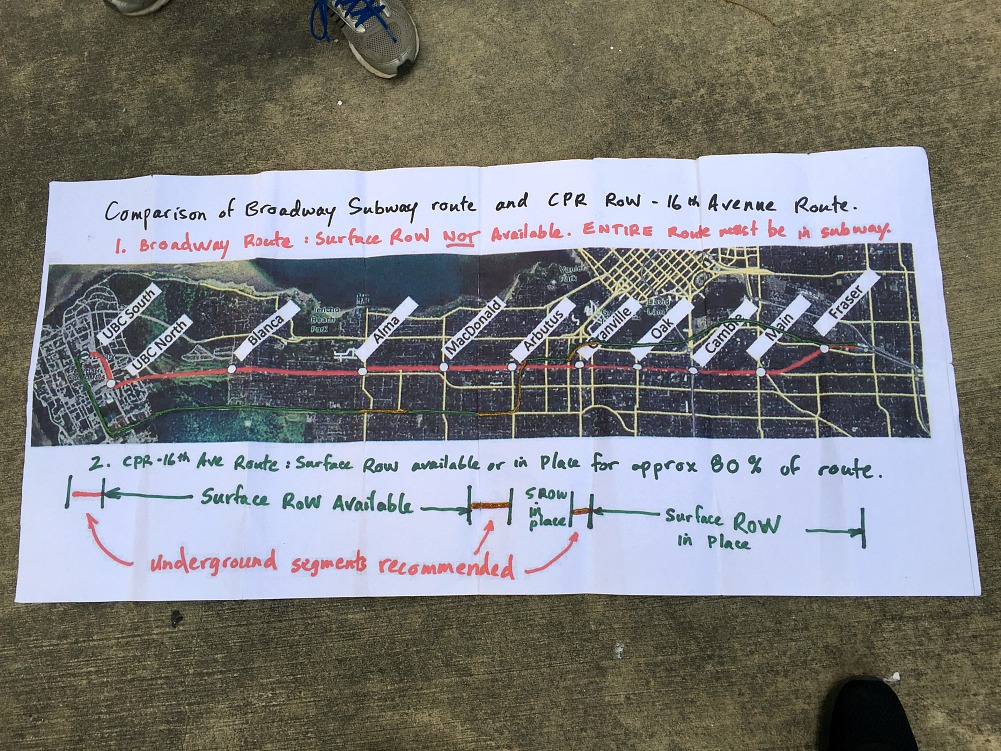 Comparison of Broadway Subway route and CPR ROW - 16th Avenue Route.
1. Broadway Route : Surface ROW NOT Available. ENTIRE Route must be in subway.
UBC South
UBC North
Blanca
Alma
MacDonald
Arbutus
anville
Oak
Cambie
Main
Fraser
Jericho
Beach
Park
2. CPR-16th Ave Route : Surface Row available or in Place for approx 80% of route.
Surface ROW Available
S ROW
in
place
Surface ROW
in Place
underground segments recommended